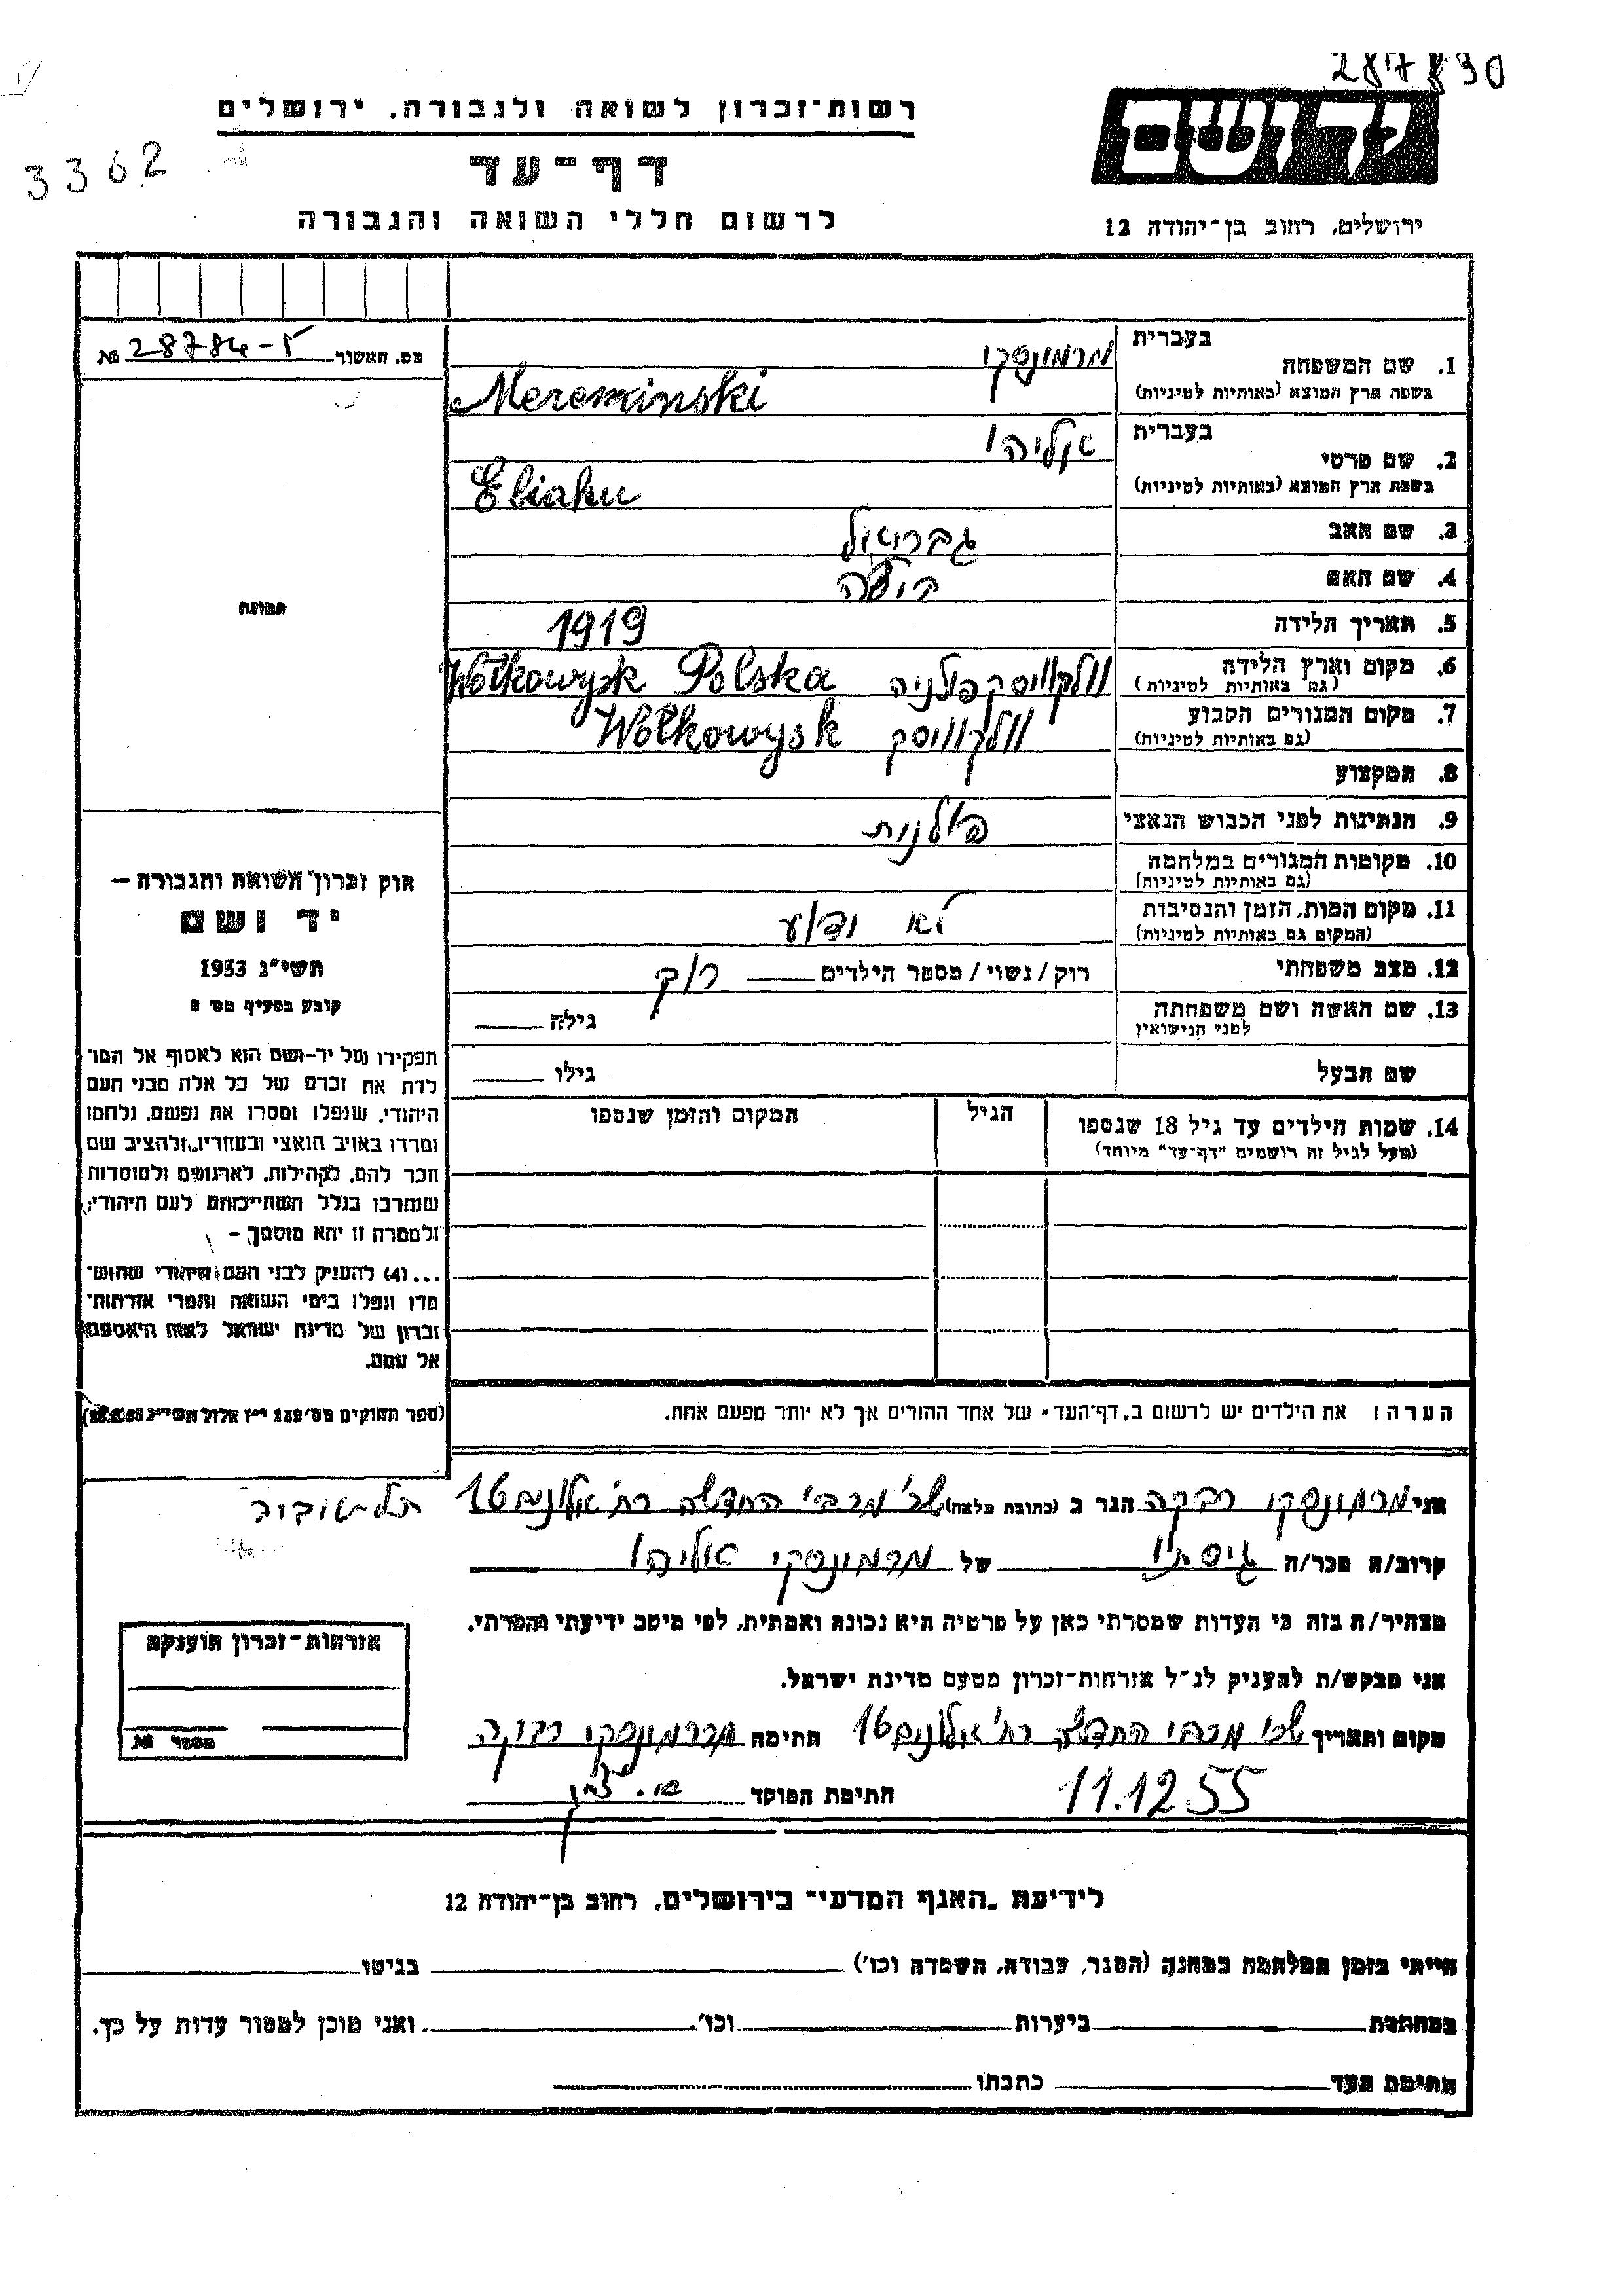 287890
רשות־זכרון לשואה ולגבורה, ירושלים
יד ושם
3362
דף־עד
לרשום חללי השואה והגבורה
ירושלים, רחוב בן־יהודה 12
מס. תאשור 28784-5 №
בעברית מרמינסקי
1. שם המשפחה
בשפת ארץ המוצא (באותיות לטיניות) Mereminski
בעברית אליהו
2. שם פרטי
בשפת ארץ המוצא (באותיות לטיניות) Eliahu
3. שם האב גבריאל
4. שם האם
5. תאריך הלידה 1919
6. מקום וארץ הלידה וולקוויסק פולניה Wołkowysk Polska
(גם באותיות לטיניות)
7. מקום המגורים הקבוע וולקוויסק Wołkowysk
(גם באותיות לטיניות)
8. המקצוע
9. הנתינות לפני הכבוש הנאצי פולנית
10. מקומות המגורים במלחמה
(גם באותיות לטיניות)
11. מקום המות, הזמן והנסיבות לא ידוע
(המקום גם באותיות לטיניות)
12. מצב משפחתי רוק / נשוי / מספר הילדים רוק
13. שם האשה ושם משפחתה גילה
לפני הנישואין
שם הבעל גילו
14. שמות הילדים עד גיל 18 שנספו הגיל המקום והזמן שנספו
(מעל לגיל זה רושמים "דף־עד" מיוחד)
הערה: את הילדים יש לרשום ב„דף־העד" של אחד ההורים אך לא יותר מפעם אחת.
תמונה
חוק זכרון השואה והגבורה –
יד ושם
תשי"ג 1953
קובע בסעיף מס' 2
תפקידו של יד-ושם הוא לאסוף אל המו־
לדת את זכרם של כל אלה מבני העם
היהודי, שנפלו ומסרו את נפשם, נלחמו
ומרדו באויב הנאצי ובעוזריו, ולהציב שם
וזכר להם, לקהילות, לארגונים ולמוסדות
שנחרבו בגלל השתייכותם לעם היהודי;
ולמטרה זו יהא מוסמך –
...(4) להעניק לבני העם היהודי שהוש־
מדו ונפלו בימי השואה והמרי אזרחות־
זכרון של מדינת ישראל לאות היאספם
אל עמם.
אני מרמינסקי רבקה הגר ב (כתובת מלאה) שכ' מכבי החדשה רח' 16
תל-אביב
קרוב/ה מכר/ה גיסתו של מרמינסקי אליהו
מצהיר/ה בזה כי העדות שמסרתי כאן על פרטיה היא נכונה ואמתית, לפי מיטב ידיעתי והכרתי.
אני מבקש/ת להעניק לנ"ל אזרחות־זכרון מטעם מדינת ישראל.
מקום ותאריך שכ' מכבי החדשה רח' 16 חתימה מרמינסקי רבקה
11.12.55 חתימת הפוקד
אזרחות־זכרון הוענקה
מספר №
לידיעת „האגף המדעי" בירושלים, רחוב בן־יהודה 12
הייתי בזמן המלחמה במחנה (הסגר, עבודה, השמדה וכו') בגיטו
במחתרת ביערות וכו'. ואני מוכן למסור עדות על כך.
חתימת העד כתבתו